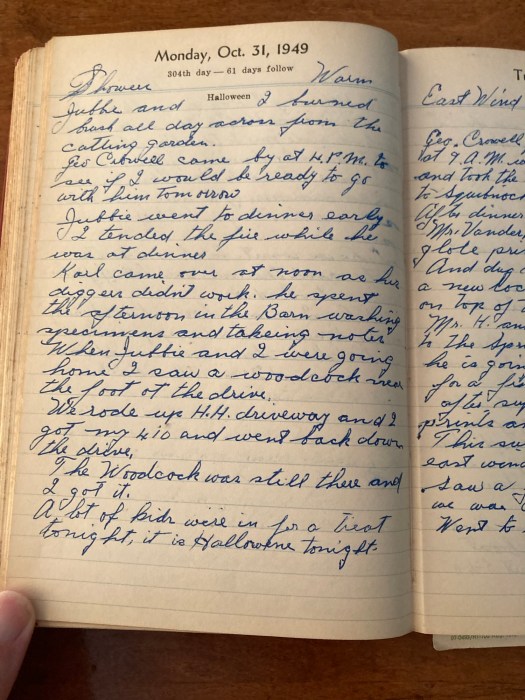 Monday, Oct. 31, 1949
304th day — 61 days follow
Shower Warm
Halloween
Jubbie and I burned
brush all day across from the
cutting garden.
Geo Crowell came by at 4.P.M. to
see if I would be ready to go
with him tomorrow
Jubbie went to dinner early
I tended the fire while he
was at dinner
Karl came over at noon as his
diggers didn't work. he spent
the afternoon in the Barn washing
specimens and takeing notes
When Jubbie and I were going
home I saw a woodcock near
the foot of the drive.
We rode up H.H. driveway and I
got my 410 and went back down
the drive.
The Woodcock was still there and
I got it.
A lot of kids were in for a treat
tonight, it is Hallowene tonight.
East Wind
Geo. Crowell
at 7.A.M.
and took the
to Squibnock
After dinner
Mr. Vander
glote
And dug
a new
on top of
Mr. H. an
to the Spr
he is goin
for a
after sup
prints a
This
east win
Saw a
we was
Went to